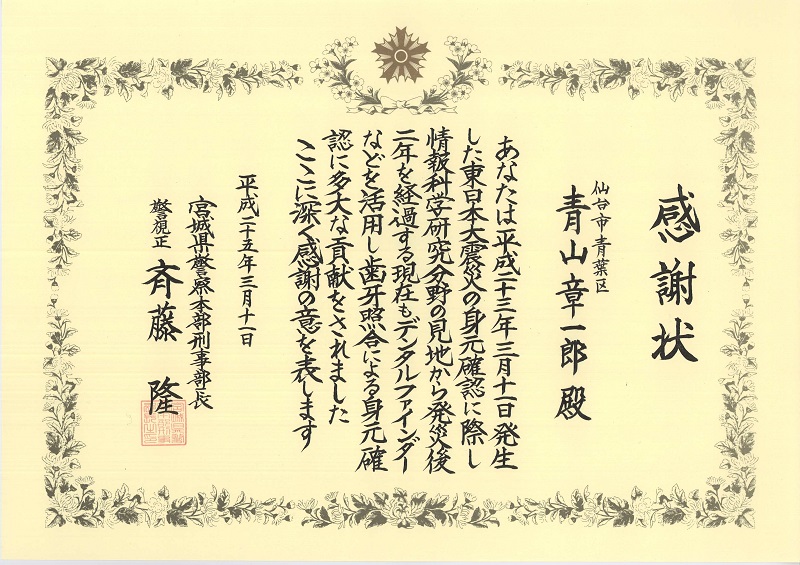 感謝状
仙台市青葉区
青山章一郎 殿
あなたは平成二十三年三月十一日発生
した東日本大震災の身元確認に際し
情報科学研究分野の見地から発災後
二年を経過する現在もデンタルファインダー
などを活用し歯牙照合による身元確
認に多大な貢献をされました
ここに深く感謝の意を表します
平成二十五年三月十一日
宮城県警察本部刑事部長
警視正 斉藤 隆